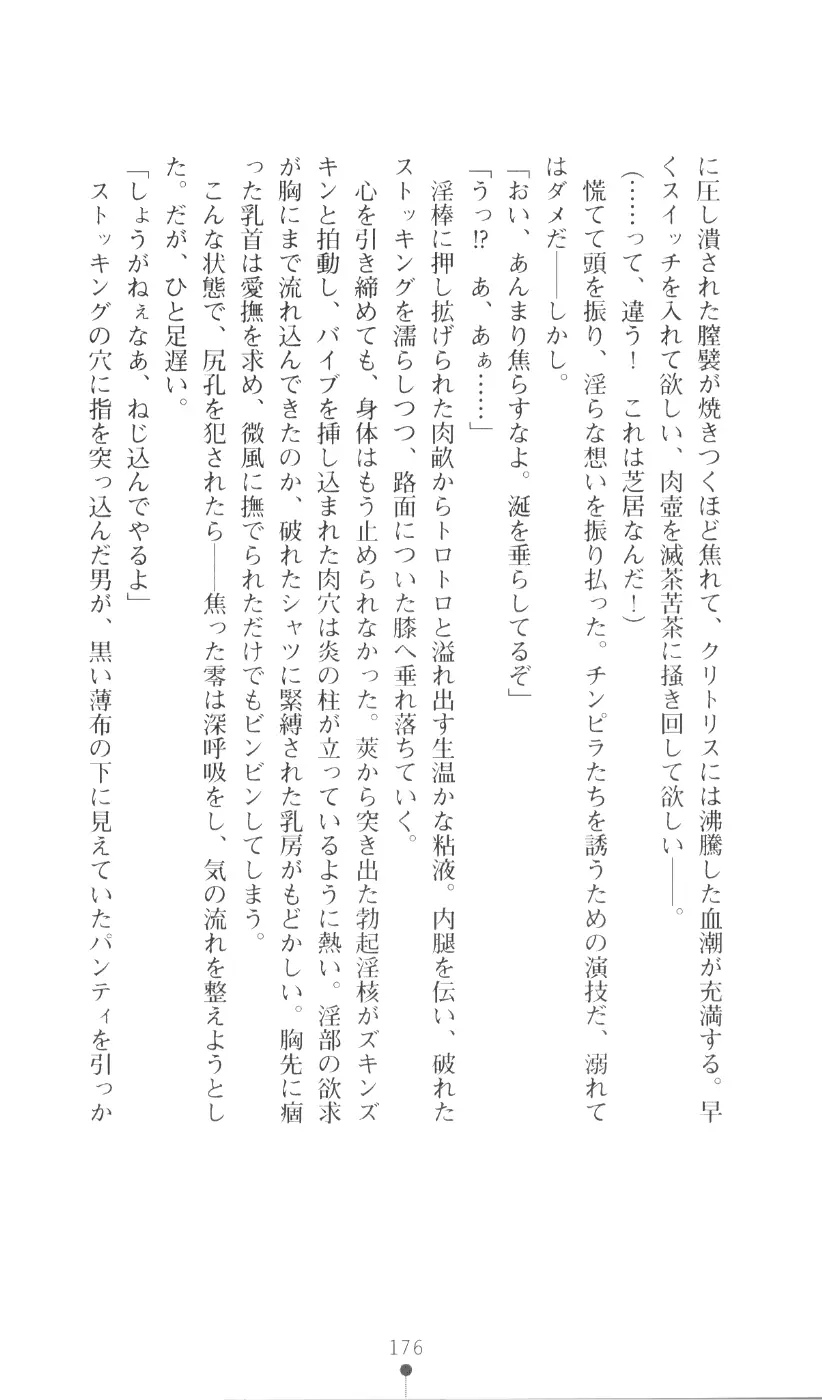 に圧し潰された膣襞が焼きつくほど焦れて、クリトリスには沸騰した血潮が充満する。早
くスイッチを入れて欲しい、肉壺を滅茶苦茶に掻き回して欲しい――。
(……って、違う!　これは芝居なんだ!)
慌てて頭を振り、淫らな想いを振り払った。チンピラたちを誘うための演技だ、溺れて
はダメだ――しかし。
「おい、あんまり焦らすなよ。涎を垂らしてるぞ」
「うっ!?　あ、あぁ……」
淫棒に押し拡げられた肉畝からトロトロと溢れ出す生温かな粘液。内腿を伝い、破れた
ストッキングを濡らしつつ、路面についた膝へ垂れ落ちていく。
心を引き締めても、身体はもう止められなかった。莢から突き出た勃起淫核がズキンズ
キンと拍動し、バイブを挿し込まれた肉穴は炎の柱が立っているように熱い。淫部の欲求
が胸にまで流れ込んできたのか、破れたシャツに緊縛された乳房がもどかしい。胸先に痼
った乳首は愛撫を求め、微風に撫でられただけでもビンビンしてしまう。
こんな状態で、尻孔を犯されたら――焦った零は深呼吸をし、気の流れを整えようとし
た。だが、ひと足遅い。
「しょうがねぇなあ、ねじ込んでやるよ」
ストッキングの穴に指を突っ込んだ男が、黒い薄布の下に見えていたパンティを引っか
176